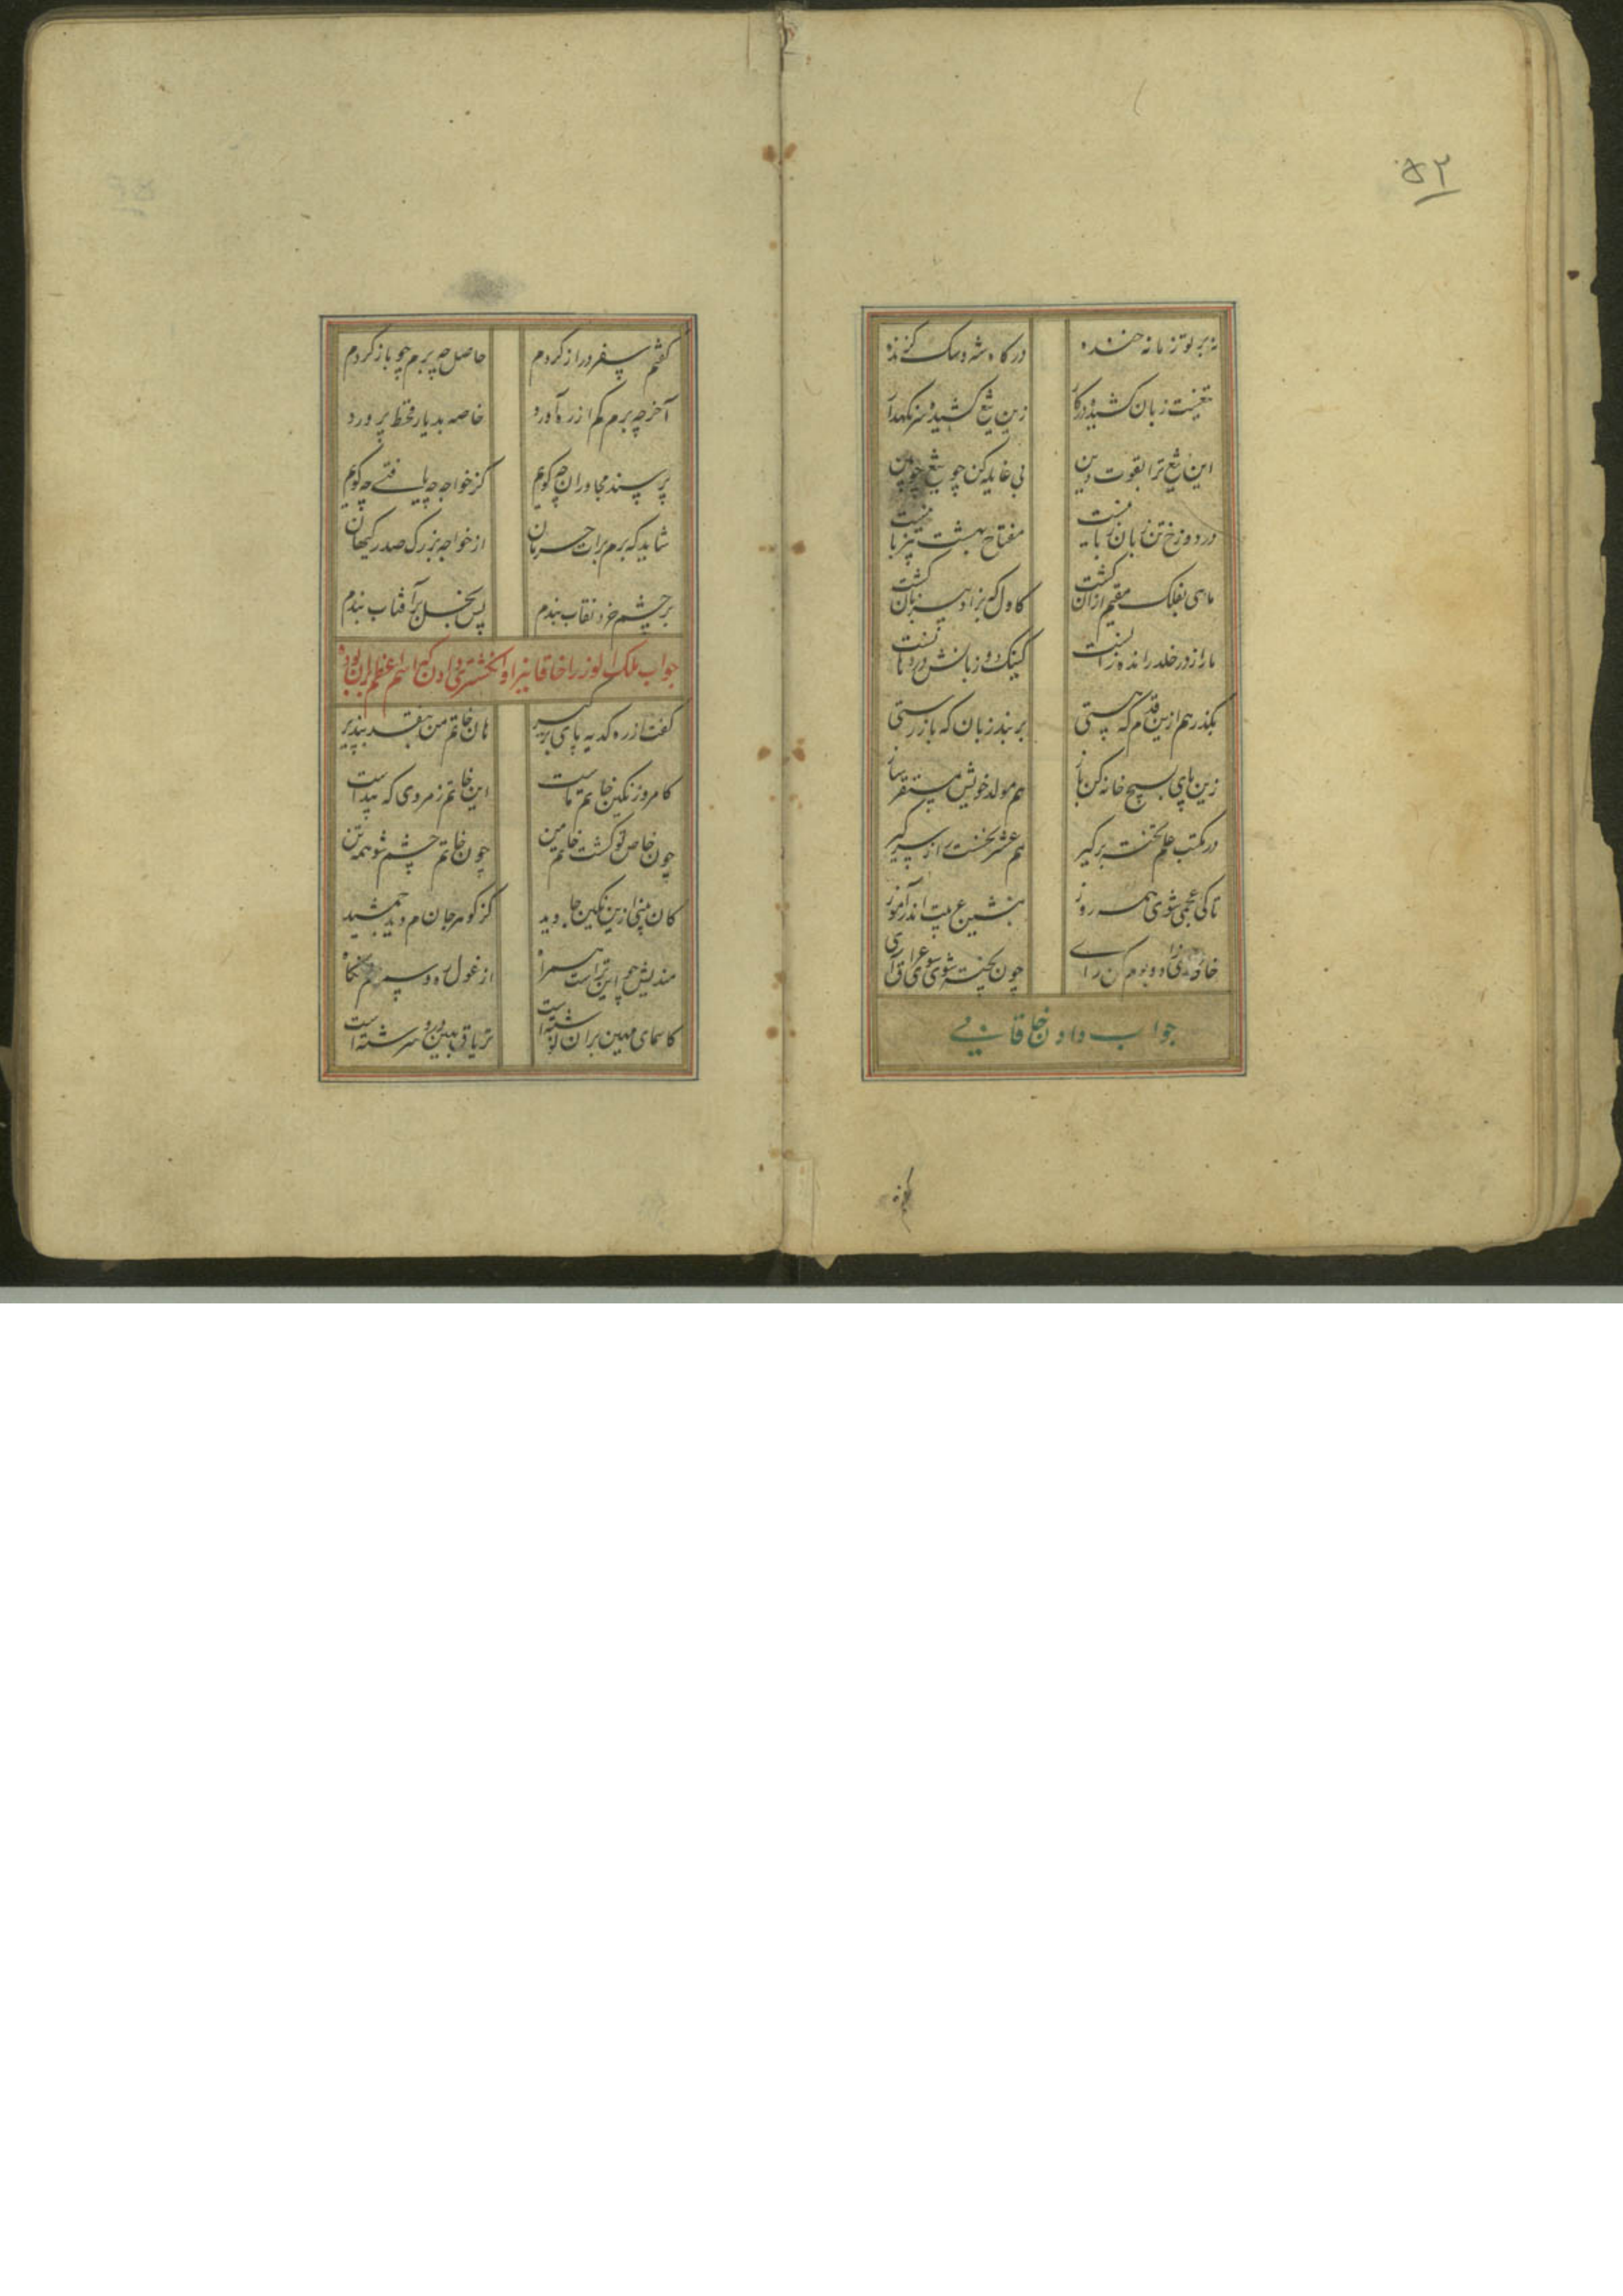 ۵۲
نه بر تو زمانه خنده درگاه شه و سگ گزنده
تیغیست زبان کشیده در کار زین تیغ کشیده سر نگهدار
این تیغ ترا بقوت دین بی غایله کن چو تیغ چوبین
در دوزخ تن زبان زبانیست مفتاح بهشت نیز بانیست
ماهی بفلک مقیم ازان گشت کاول که بزاد بی زبان گشت
مار از در خلد رانده زانست کینک دو زبانش در دهانست
بگذر هم ازین قدم که هستی بر بند زبان که باز رستی
زین پای بسیج خانه کن باز هم مولد خویش مستقر ساز
در مکتب علم تخت بر گیر هم عشر نخست را ز سر گیر
تا کی عجمی شوی همه روز بنشین عربیت اندر آموز
چون پخته شوی سوی عراق آی
جواب دادن خاقانی
گفتم
گفتم سفر دراز کردم حاصل چه برم چو باز کردم
آخر چه برم کم از ره آورد خاصه بدیار قحط پرورد
پرسند مجاوران چه گویم کز خواجه چه یافتی چه گویم
شاید که برم برات حرمان از خواجه بزرگ صدر کیهان
بر چشم خرد نقاب بندم پس بخل بر آفتاب بندم
جواب ملک الوزرا خاقانیرا و انگشتری دادن که اسم اعظم بران بود
گفت از ره کدیه پای بر گیر هان خاتم من بنقد بپذیر
کامروز نگین خاتم ماست این خاتم زمردی که پیداست
چون خاص تو گشت خاتم من چون خاتم چشم شو همه تن
کان بینی ازین نگین جاوید کز گوهر جان ندید جمشید
مندیش چو این تراست همراه از غول ره و
کاسمای مهین بران نوشته است تریاق مهین درو سرشته است